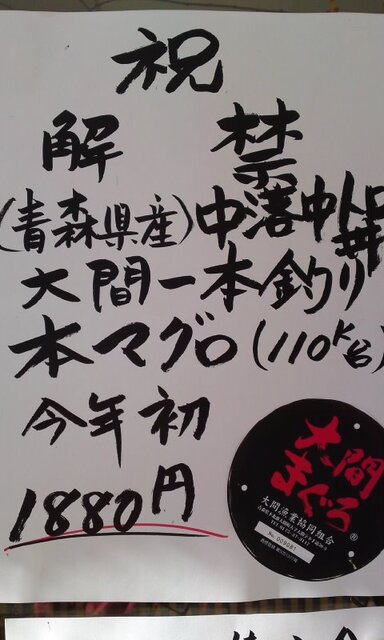 祝
解 禁
(青森県産)中落中トロ丼
大間一本釣り
本マグロ(110K台)
今年初
1880円
大間
まぐろ
®
大間漁業協同組合